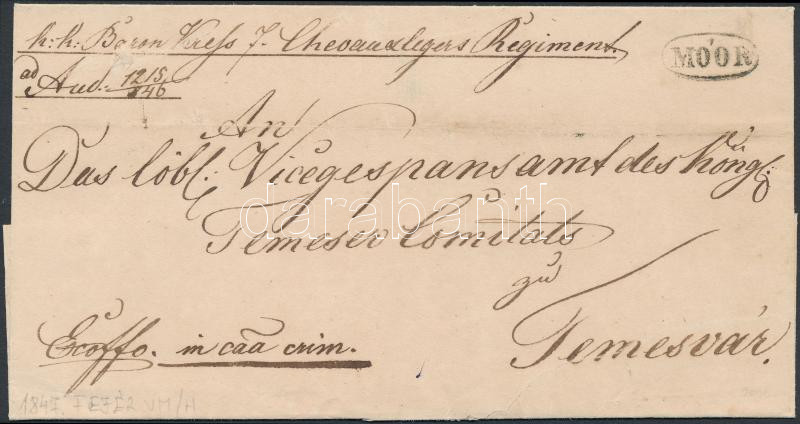 k: k: Baron Kress 7. Chevauxlegers Regiment.
MÓÓR
ad Aud: 1215/846
An
Das löbl: Vicegespansamt des köngl:
Temeser Comitats
zu
Temesvár.
Exoffo. in caã crim.
1847. FEJÉR VM/H
darabanth